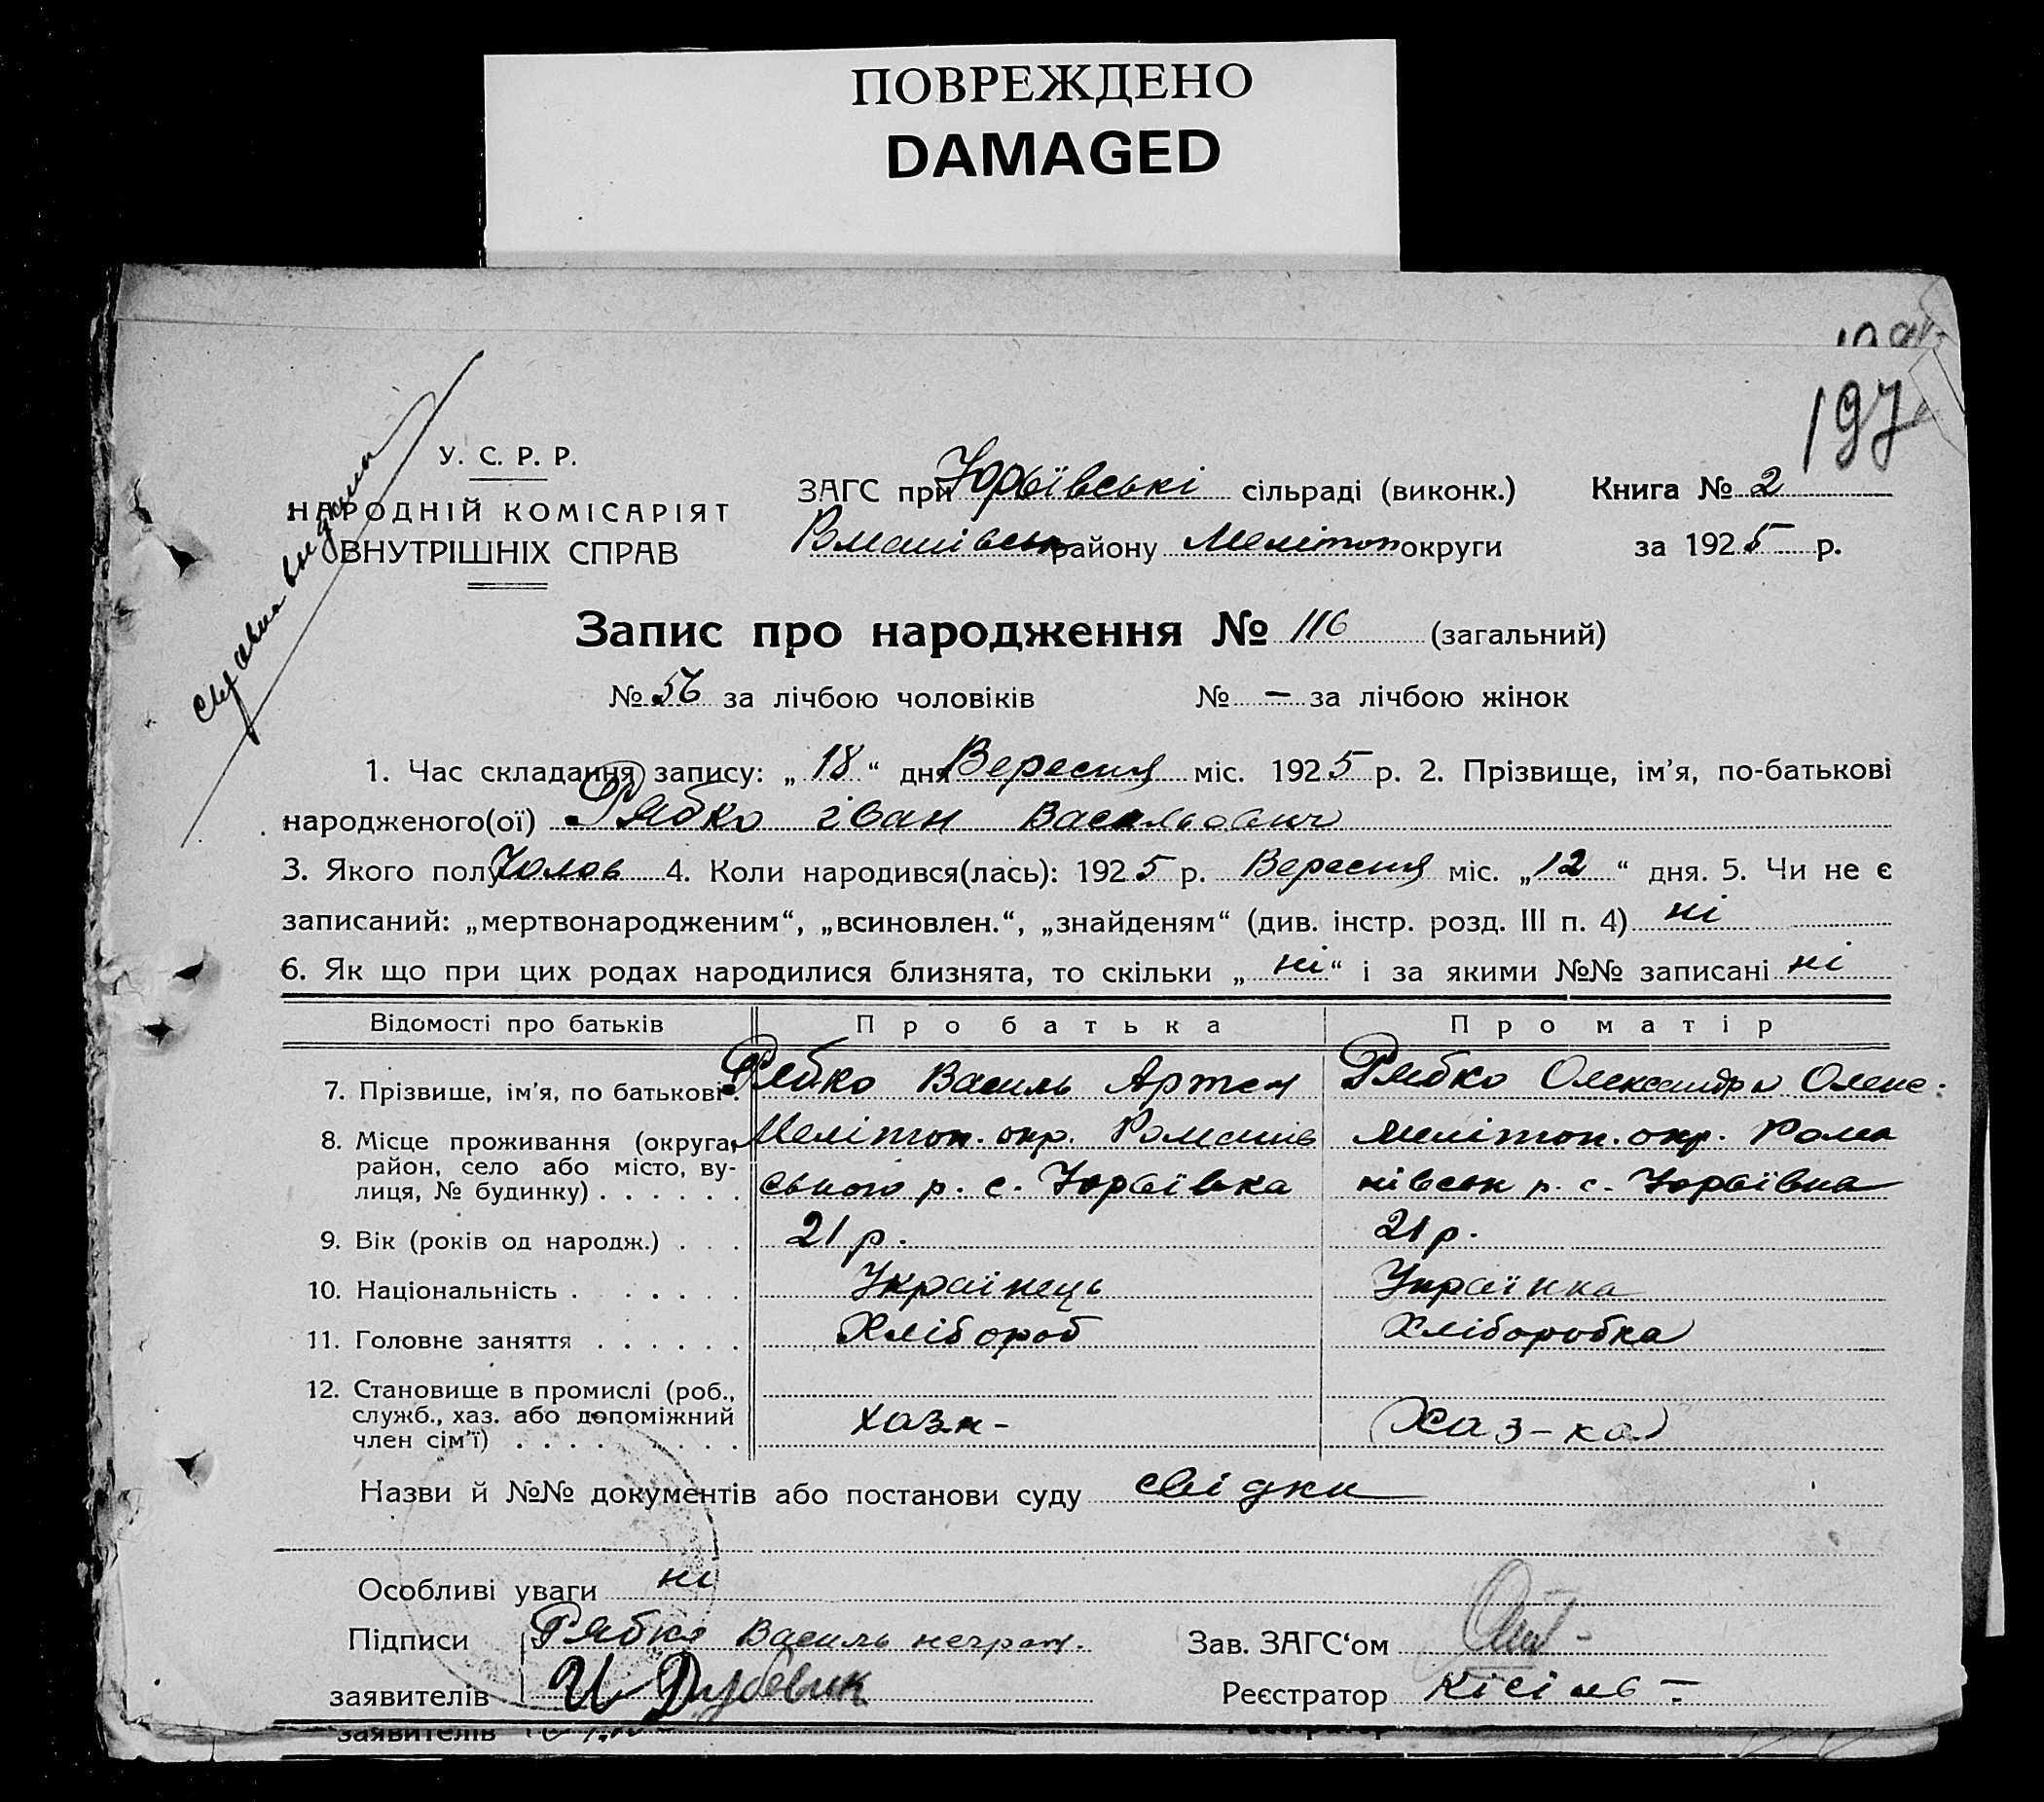 ПОВРЕЖДЕНО
DAMAGED
197
У. С. Р. Р.
НАРОДНІЙ КОМІСАРІЯТ
ВНУТРІШНІХ СПРАВ
ЗАГС при Юрьївські сільраді (виконк.) Книга № 2
району Мелітоп округи за 1925 р.
Запис про народження № 116 (загальний)
№ 56 за лічбою чоловіків № — за лічбою жінок
1. Час складання запису: „ 18 “ дня Вересня міс. 1925 р. 2. Прізвище, ім'я, по-батькові
народженого(ої) Рябко іван Васильович
3. Якого полу Чолов 4. Коли народився(лась): 1925 р. Вересня міс. „12“ дня. 5. Чи не є
записаний: „мертвонародженим“, „всиновлен.“, „знайденям“ (див. інстр. розд. III п. 4) ні
6. Як що при цих родах народилися близнята, то скільки „ ні “ і за якими №№ записані ні
Відомості про батьків Про батька Про матір
7. Прізвище, ім'я, по батькові . Рябко Василь Артем Рябко Олександра Олекс:
8. Місце проживання (округа, Мелітоп. окр. Романів Мелітоп. окр. Рома
район, село або місто, ву-
лиця, № будинку) . . . . . . ського р. с. Юрьївка нівськ р. с. Юрьївка
9. Вік (років од народж.) . . . 21 р. 21 р.
10. Національність . . . . . . Українець Українка
11. Головне заняття . . . . . . Хлібороб Хлібобробка
12. Становище в промислі (роб.,
служб., хаз. або допоміжний хаз-н- Хаз-ка
член сім'ї) . . . . . . . .
Назви й №№ документів або постанови суду свідки
Особливі уваги ні
Підписи Рябко Василь неграм. Зав. ЗАГС‘ом
заявителів И Дубовик Реєстратор Кісіль
заявителів